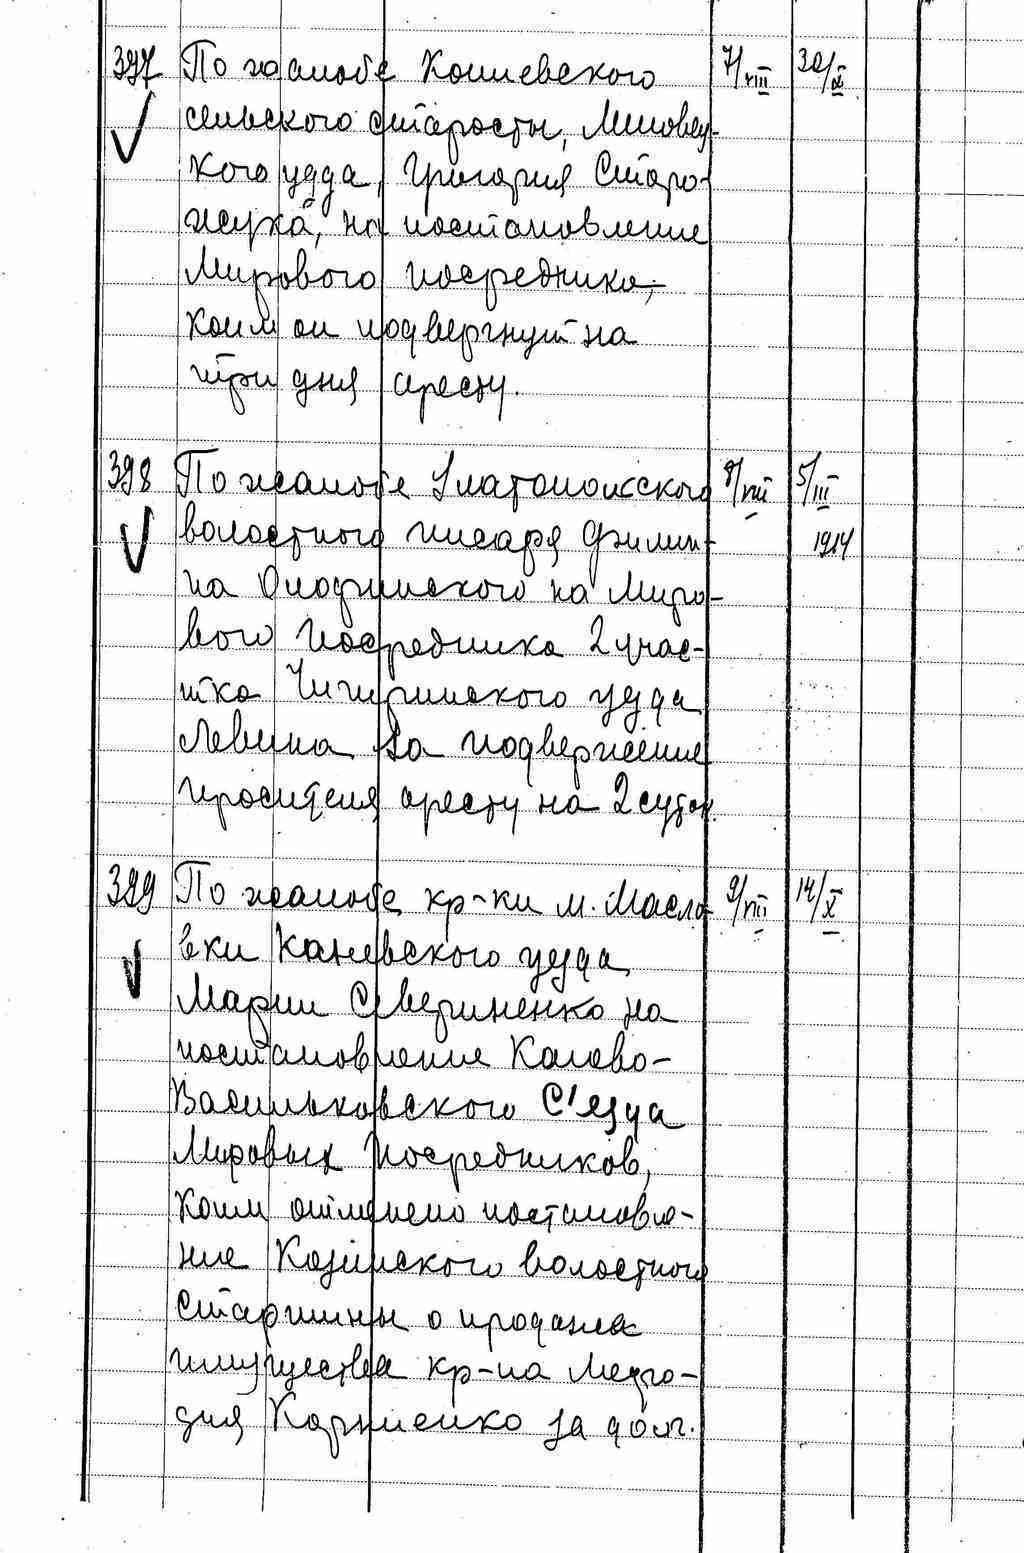 397 По жалобе Кошевского 7/VIII 30/IX
сельского старосты, Липовец-
кого уезда, Григория Сторо-
жука, на постановление
Мирового посредника,
коим он подвергнут на
три дня аресту.
398 По жалобе Златопольского 8/VIII 5/III
волостного писаря Филип- 1914
па Олофинского на Миро-
вого Посредника 2 учас-
тка Чигиринского уезда
Левина за подвержение
просителя аресту на 2 суток.
399 По жалобе кр-ки м. Масло- 9/VIII 14/X
вки Каневского уезда
Марии Севериненко на
постановление Киево-
Васильковского С'езда
Мировых Посредников,
коим отменено постановле-
ние Козинского волостного
старшины о продаже
имущества кр-на Мефо-
дия Корниенко за долг.